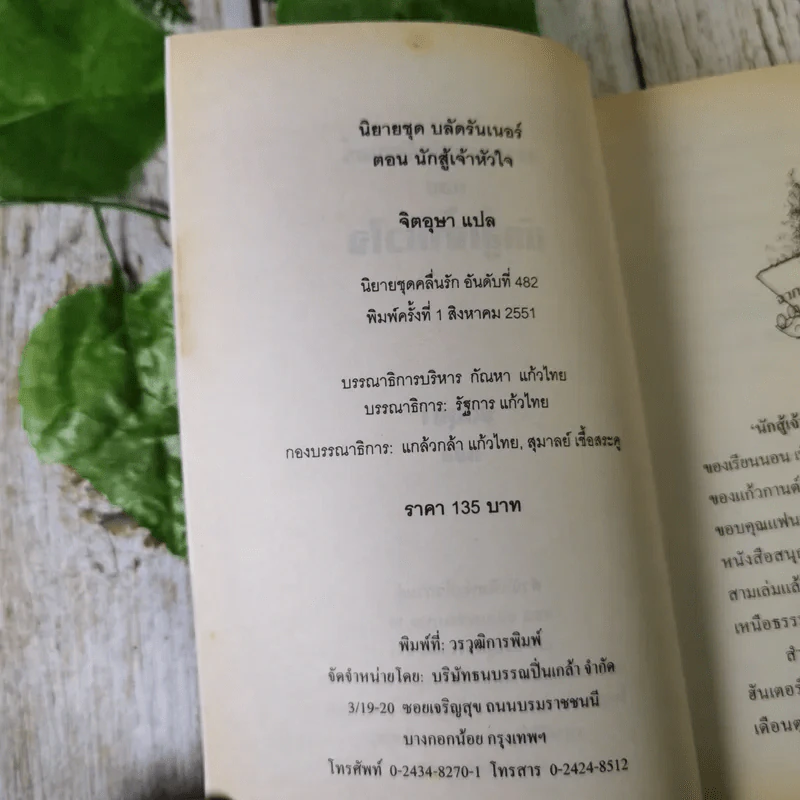 นิยายชุด บลัดรันเนอร์
ตอน นักสู้เจ้าหัวใจ
จิตอุษา แปล
นิยายชุดคลื่นรัก อันดับที่ 482
พิมพ์ครั้งที่ 1 สิงหาคม 2551
บรรณาธิการบริหาร กัณหา แก้วไทย
บรรณาธิการ: รัฐการ แก้วไทย
กองบรรณาธิการ: แกล้วกล้า แก้วไทย, สุมาลย์ เชื้อสระคู
ราคา 135 บาท
พิมพ์ที่: วรวุฒิการพิมพ์
จัดจำหน่ายโดย: บริษัทธนบรรณปิ่นเกล้า จำกัด
3/19-20 ซอยเจริญสุข ถนนบรมราชชนนี
บางกอกน้อย กรุงเทพฯ
โทรศัพท์ 0-2434-8270-1 โทรสาร 0-2424-8512
"นักสู้เจ้า
ของเรียนนอน
ของแก้วกานต์
ขอบคุณแฟน
หนังสือสนุก
สามเล่มแล้
เหนือธรร
สำ
ฮันเตอร์
เดือนตุ